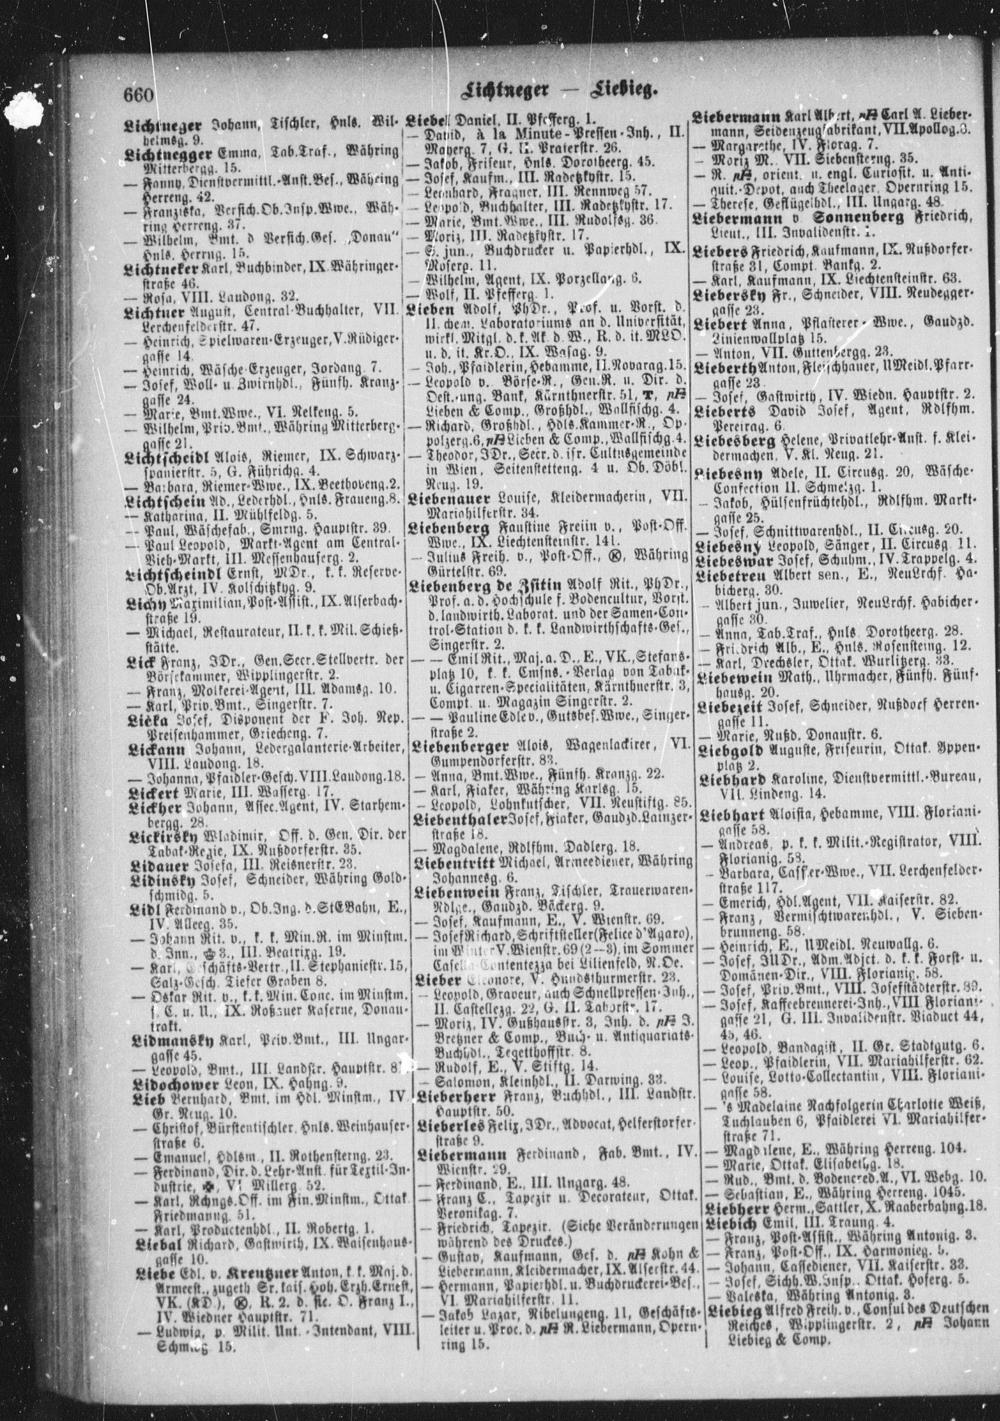 660
Lichtneger — Liebieg.
Lichtneger Johann, Tischler, Hnls. Wil-
helmsg. 9.
Lichtnegger Emma, Tab.Traf., Währing
Mitterbergg. 15.
— Fanny, Dienstvermittl.-Anst.Bes., Währing
Herreng. 42.
— Franziska, Versich.Ob.Insp.Wwe., Wäh-
ring Herreng. 37.
— Wilhelm, Bmt. d Versich.Ges. „Donau“
Hnls. Herrng. 15.
Lichtneker Karl, Buchbinder, IX. Währinger-
straße 46.
— Rosa, VIII. Laudong. 32.
Lichtner August, Central-Buchhalter, VII.
Lerchenfelderstr. 47.
— Heinrich, Spielwaren-Erzeuger, V. Rüdiger-
gasse 14.
— Heinrich, Wäsche-Erzeuger, Jordang. 7.
— Josef, Woll- u. Zwirnhdl., Fünfh. Kranz-
gasse 24.
— Marie, Bmt.Wwe., VI. Nelkeng. 5.
— Wilhelm, Priv.Bmt., Währing Mitterberg-
gasse 21.
Lichtscheidl Alois, Riemer, IX. Schwarz-
spanierstr. 5, G. Führichg. 4.
— Barbara, Riemer-Wwe., IX. Beethoveng. 2.
Lichtschein Ad., Lederhdl., Hnls. Fraueng. 8.
— Katharina, II. Mühlfeldg. 5.
— Paul, Wäschefab., Smrng. Hauptstr. 39.
— Paul Leopold, Markt-Agent am Central-
Vieh-Markt, III. Messenhauserg. 2.
Lichtscheindl Ernst, MDr., k. k. Reserve-
Ob.Arzt, IV. Kolschitzkyg. 9.
Lichy Maximilian, Post-Assist., IX. Alserbach-
straße 19.
— Michael, Restaurateur, II. k. k. Mil. Schieß-
stätte.
Lick Franz, JDr., Gen.Secr.Stellvertr. der
Börsekammer, Wipplingerstr. 2.
— Franz, Molkerei-Agent, III. Adamsg. 10.
— Karl, Priv.Bmt., Singerstr. 7.
Licka Josef, Disponent der F. Joh. Nep.
Preisenhammer, Griecheng. 7.
Lickann Johann, Ledergalanterie-Arbeiter,
VIII. Laudong. 18.
— Johanna, Pfaidler-Gesch. VIII. Laudong. 18.
Lickert Marie, III. Wasserg. 17.
Lickher Johann, Assec.Agent, IV. Starhem-
bergg. 28.
Lickirsky Wladimir, Off. d. Gen. Dir. der
Tabak-Regie, IX. Nußdorferstr. 35.
Lidauer Josefa, III. Reisnerstr. 23.
Lidinsky Josef, Schneider, Währing Gold-
schmidg. 5.
Lidl Ferdinand v., Ob.Ing. d. StEBahn, E.,
IV. Alleeg. 35.
— Johann Rit. v., k. k. Min.R. im Minstm.
d. Inn., 3., III. Beatrixg. 19.
— Karl, Geschäfts-Vertr., II. Stephaniestr. 15,
Salz-Gesch. Tiefer Graben 8.
— Oskar Rit. v., k. k. Min. Conc. im Minstm.
f. C. u. U., IX. Roßauer Kaserne, Donau-
trakt.
Lidmansky Karl, Priv.Bmt., III. Ungar-
gasse 45.
— Leopold, Bmt., III. Landstr. Hauptstr. 8
Lidochower Leon, IX. Hahng. 9.
Lieb Bernhard, Bmt. im Hdl. Minstm., IV.
Gr. Neug. 10.
— Christof, Bürstentischler, Hnls. Weinhauser-
straße 6.
— Emanuel, Hdlsm., II. Rothensterng. 23.
— Ferdinand, Dir. d. Lehr-Anst. für Textil-In-
dustrie, VI. Millerg. 52.
— Karl, Rchngs.Off. im Fin. Minstm., Ottak.
Friedmanng. 51.
— Karl, Productenhdl., II. Robertg. 1.
Liebal Richard, Gastwirth, IX. Waisenhaus-
gasse 10.
Liebe Edl. v. Kreutzner Anton, k. k. Maj. d.
Armeest., zugeth. Sr. kais. Hoh. Erzh. Ernest,
VK. (KD.), R. 2. d. sic. O. Franz I.,
IV. Wiedner Hauptstr. 71.
— Ludwig, p. Milit. Unt.-Intendant, VIII.
15.
Liebel Daniel, II. Pfefferg. 1.
— David, à la Minute-Pressen-Inh., II.
Mayerg. 7, G. II. Praterstr. 26.
— Jakob, Friseur, Hnls. Dorotheerg. 45.
— Josef, Kaufm., III. Radetzkystr. 15.
— Leonhard, Fragner, III. Rennweg 57.
— Leopold, Buchhalter, III. Radetzkystr. 17.
— Marie, Bmt.Wwe., III. Rudolfsg. 36.
— Moriz, III. Radetzkystr. 17.
— S. jun., Buchdrucker u. Papierhdl., IX.
Moserg. 11.
— Wilhelm, Agent, IX. Porzellang. 6.
— Wolf, II. Pfefferg. 1.
Lieben Adolf, PhDr., Prof. u. Vorst. d.
II. chem. Laboratoriums an d. Universität,
wirkl. Mitgl. d. k. Ak. d. W., R. d. it. MLO.
u. d. it. Kr.O., IX. Wasag. 9.
— Joh., Pfaidlerin, Hebamme, II. Novarag. 15.
— Leopold v. Börse-R., Gen.R. u. Dir. d.
Oest.-ung. Bank, Kärnthnerstr. 51, T,
Lieben & Comp., Großhdl., Wallfischg. 4.
— Richard, Großhdl., Hdls.Kammer-R., Op-
polzerg. 6, Lieben & Comp., Wallfischg. 4.
— Theodor, JDr., Secr. d. isr. Cultusgemeinde
in Wien, Seitenstetteng. 4 u. Ob. Döbl.
Neug. 19.
Liebenauer Louise, Kleidermacherin, VII.
Mariahilferstr. 34.
Liebenberg Faustine Freiin v., Post-Off.
Wwe., IX. Liechtensteinstr. 141.
— Julius Freih. v., Post-Off., Währing
Gürtelstr. 69.
Liebenberg de Zsitin Adolf Rit., PhDr.,
Prof. a. d. Hochschule f. Bodencultur, Vorst.
d. landwirth. Laborat. und der Samen-Con-
trol-Station d. k. k. Landwirthschafts-Ges.,
Singerstr. 2.
— — Emil Rit., Maj. a. D., E., VK., Stefans-
platz 10, k. k. Cmsns.-Verlag von Tabak-
u. Cigarren-Specialitäten, Kärnthnerstr. 3,
Compt. u. Magazin Singerstr. 2.
— — Pauline Edle v., Gutsbes.Wwe., Singer-
straße 2.
Liebenberger Alois, Wagenlackirer, VI.
Gumpendorferstr. 83.
— Anna, Bmt.Wwe., Fünfh. Kranzg. 22.
— Karl, Fiaker, Währing Karlsg. 15.
— Leopold, Lohnkutscher, VII. Neustiftg. 85.
Liebenthaler Josef, Fiaker, Gaudzd. Lainzer-
straße 18.
— Magdalene, Rdlfhm. Dadlerg. 18.
Liebentritt Michael, Armeediener, Währing
Johannesg. 6.
Liebenwein Franz, Tischler, Trauerwaren-
Ndlge., Gaudzd. Bäckerg. 9.
— Josef, Kaufmann, E., V. Wienstr. 69.
— Josef Richard, Schriftsteller (Felice d'Agaro),
im Winter V. Wienstr. 69 (2—3), im Sommer
Casella Contentezza bei Lilienfeld, N.Oe.
Lieber Eleonore, V. Hundsthurmerstr. 23.
— Leopold, Graveur, auch Schnellpressen-Inh.,
II. Castellezg. 22, G. II. Taborstr. 17.
— Moriz, IV. Gußhausstr. 3, Inh. d. J.
Bretzner & Comp., Buch- u. Antiquariats-
Buchhdl., Tegetthoffstr. 8.
— Rudolf, E., V. Stiftg. 14.
— Salomon, Kleinhdl., II. Darwing. 33.
Lieberherr Franz, Buchhdl., III. Landstr.
Hauptstr. 50.
Lieberles Felix, JDr., Advocat, Helferstorfer-
straße 9.
Liebermann Ferdinand, Fab. Bmt., IV.
Wienstr. 29.
— Ferdinand, E., III. Ungarg. 48.
— Franz C., Tapezir u. Decorateur, Ottak.
Veronikag. 7.
— Friedrich, Tapezir. (Siehe Veränderungen
während des Druckes.)
— Gustav, Kaufmann, Ges. d. Kohn &
Liebermann, Kleidermacher, IX. Alserstr. 44.
— Hermann, Papierhdl. u. Buchdruckerei-Bes.,
VI. Mariahilferstr. 11.
— Jakob Lazar, Nibelungeng. 11, Geschäfts-
leiter u. Proc. d. R. Liebermann, Opern-
ring 15.
Liebermann Karl Albert, Carl A. Lieber-
mann, Seidenzeugfabrikant, VII. Apollog. 3.
— Margarethe, IV. Florag. 7.
— Moriz M., VII. Siebensterng. 35.
— R. orient. u. engl. Curiosit. u. Anti-
quit.-Depot, auch Theelager, Opernring 15.
— Therese, Geflügelhdl., III. Ungarg. 48.
Liebermann v. Sonnenberg Friedrich,
Lieut., III. Invalidenstr. 1.
Liebers Friedrich, Kaufmann, IX. Nußdorfer-
straße 31, Compt. Bankg. 2.
— Karl, Kaufmann, IX. Liechtensteinstr. 63.
Liebersky Fr., Schneider, VIII. Neudegger-
gasse 23.
Liebert Anna, Pflasterer-Wwe., Gaudzd.
Linienwallplatz 15.
— Anton, VII. Guttenbergg. 23.
Lieberth Anton, Fleischhauer, UMeidl. Pfarr-
gasse 23
— Josef, Gastwirth, IV. Wiedn. Hauptstr. 2.
Lieberts David Josef, Agent, Rdlfhm.
Pereirag. 6.
Liebesberg Helene, Privatlehr-Anst. f. Klei-
dermachen, V. Kl. Neug. 21.
Liebesny Adele, II. Circusg. 20, Wäsche-
Confection II. Schmelzg. 1.
— Jakob, Hülsenfrüchtehdl., Rdlfhm. Markt-
gasse 25.
— Josef, Schnittwarenhdl., II. Circusg. 20.
Liebesny Leopold, Sänger, II. Circusg. 11.
Liebeswar Josef, Schuhm., IV. Trappelg. 4.
Liebetreu Albert sen., E., NeuLrchf. Ha-
bicherg. 30.
— Albert jun., Juwelier, NeuLrchf. Habicher-
gasse 30.
— Anna, Tab.Traf., Hnls. Dorotheerg. 28.
— Friedrich Alb., E., Hnls. Rosensteing. 12.
— Karl, Drechsler, Ottak. Wurlitzerg. 33.
Liebewein Math., Uhrmacher, Fünfh. Fünf-
hausg. 20.
Liebezeit Josef, Schneider, Nußdorf Herren-
gasse 11.
— Marie, Nußd. Donaustr. 6.
Liebgold Auguste, Friseurin, Ottak. Eppen-
platz 2.
Liebhard Karoline, Dienstvermittl.-Bureau,
VII. Lindeng. 14.
Liebhart Aloisia, Hebamme, VIII. Floriani-
gasse 58.
— Andreas, p. k. k. Milit.-Registrator, VIII.
Florianig. 58.
— Barbara, Cassier-Wwe., VII. Lerchenfelder-
straße 117.
— Emerich, Hdl.Agent, VII. Kaiserstr. 82.
— Franz, Vermischtwarenhdl., V. Sieben-
brunneng. 58.
— Heinrich, E., UMeidl. Neuwallg. 6.
— Josef, JUDr., Adm.Adjct. d. k. k. Forst- u.
Domänen-Dir., VIII. Florianig. 58.
— Josef, Priv.Bmt., VIII. Josefstädterstr. 89.
— Josef, Kaffeebrennerei-Inh., VIII. Floriani-
gasse 21, G. III. Invalidenstr. Viaduct 44,
45, 46.
— Leopold, Bandagist, II. Gr. Stadtgutg. 6.
— Leop., Pfaidlerin, VII. Mariahilferstr. 62.
— Louise, Lotto-Collectantin, VIII. Floriani-
gasse 58.
— 's Madelaine Nachfolgerin Charlotte Weiß,
Tuchlauben 6, Pfaidlerei VI. Mariahilfer-
straße 71.
— Magdalene, E., Währing Herreng. 104.
— Marie, Ottak. Elisabethg. 18.
— Rud., Bmt. d. Bodencred.A., VI. Webg. 10.
— Sebastian, E., Währing Herreng. 1045.
Liebherr Herm., Sattler, X. Raaberbahng. 18.
Liebich Emil, III. Traung. 4.
— Franz, Post-Assist., Währing Antonig. 3.
— Franz, Post-Off., IX. Harmonieg. 5.
— Johann, Cassediener, VII. Kaiserstr. 33.
— Josef, Sichh.W.Insp., Ottak. Hoferg. 5.
— Valeska, Währing Antonig. 3.
Liebieg Alfred Freih. v., Consul des Deutschen
Reiches, Wipplingerstr. 2, Johann
Liebieg & Comp.